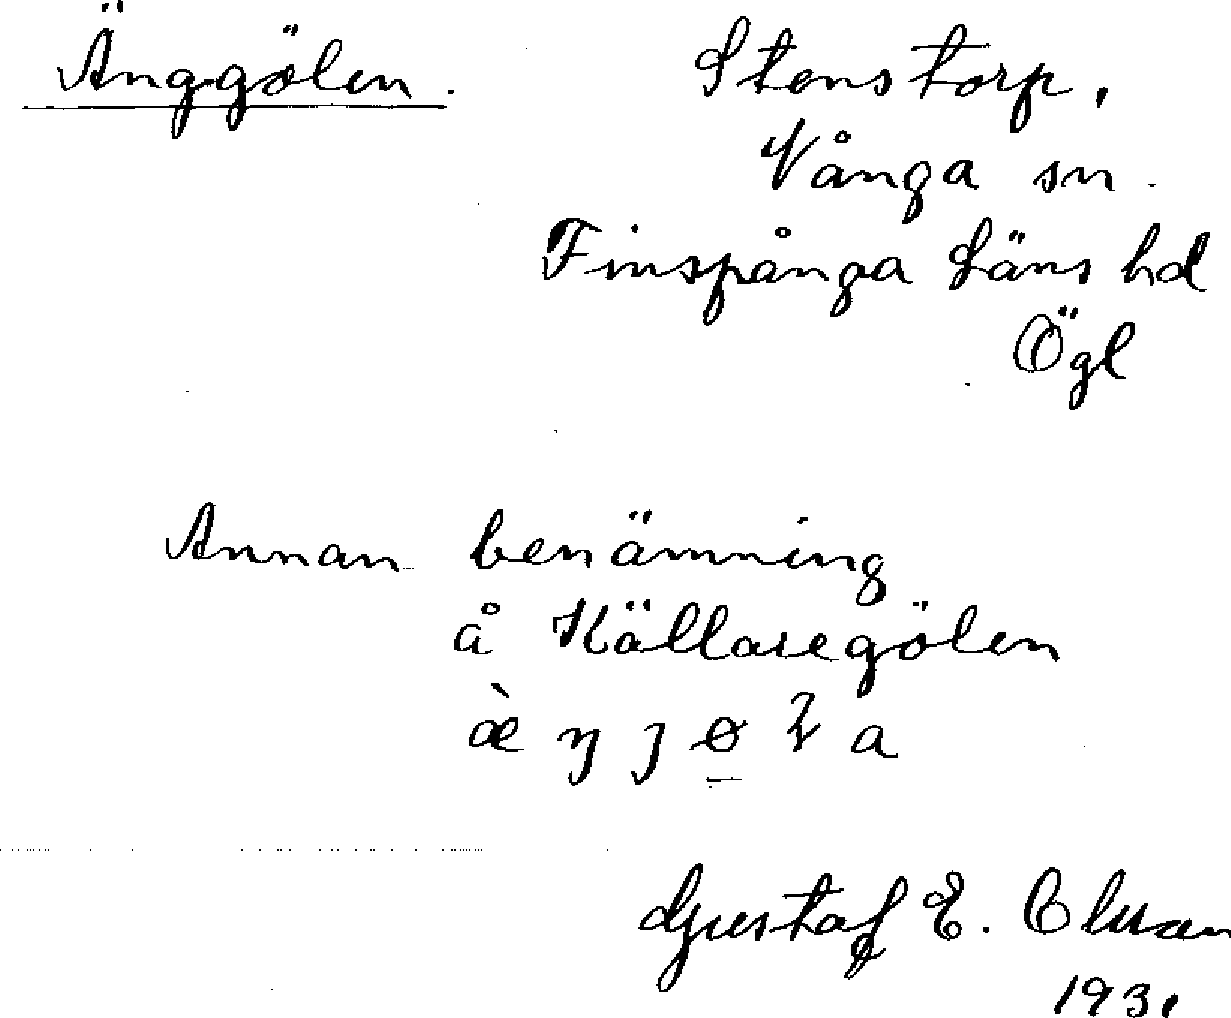 Änggölen. Stenstorp,
Vånga sn.
Finspånga Läns hd
Ögl
Annan benämning
å Källaregölen
æ̀ ŋ ȷ ø̲ ꭝ a
Gustaf E. Clman
1931